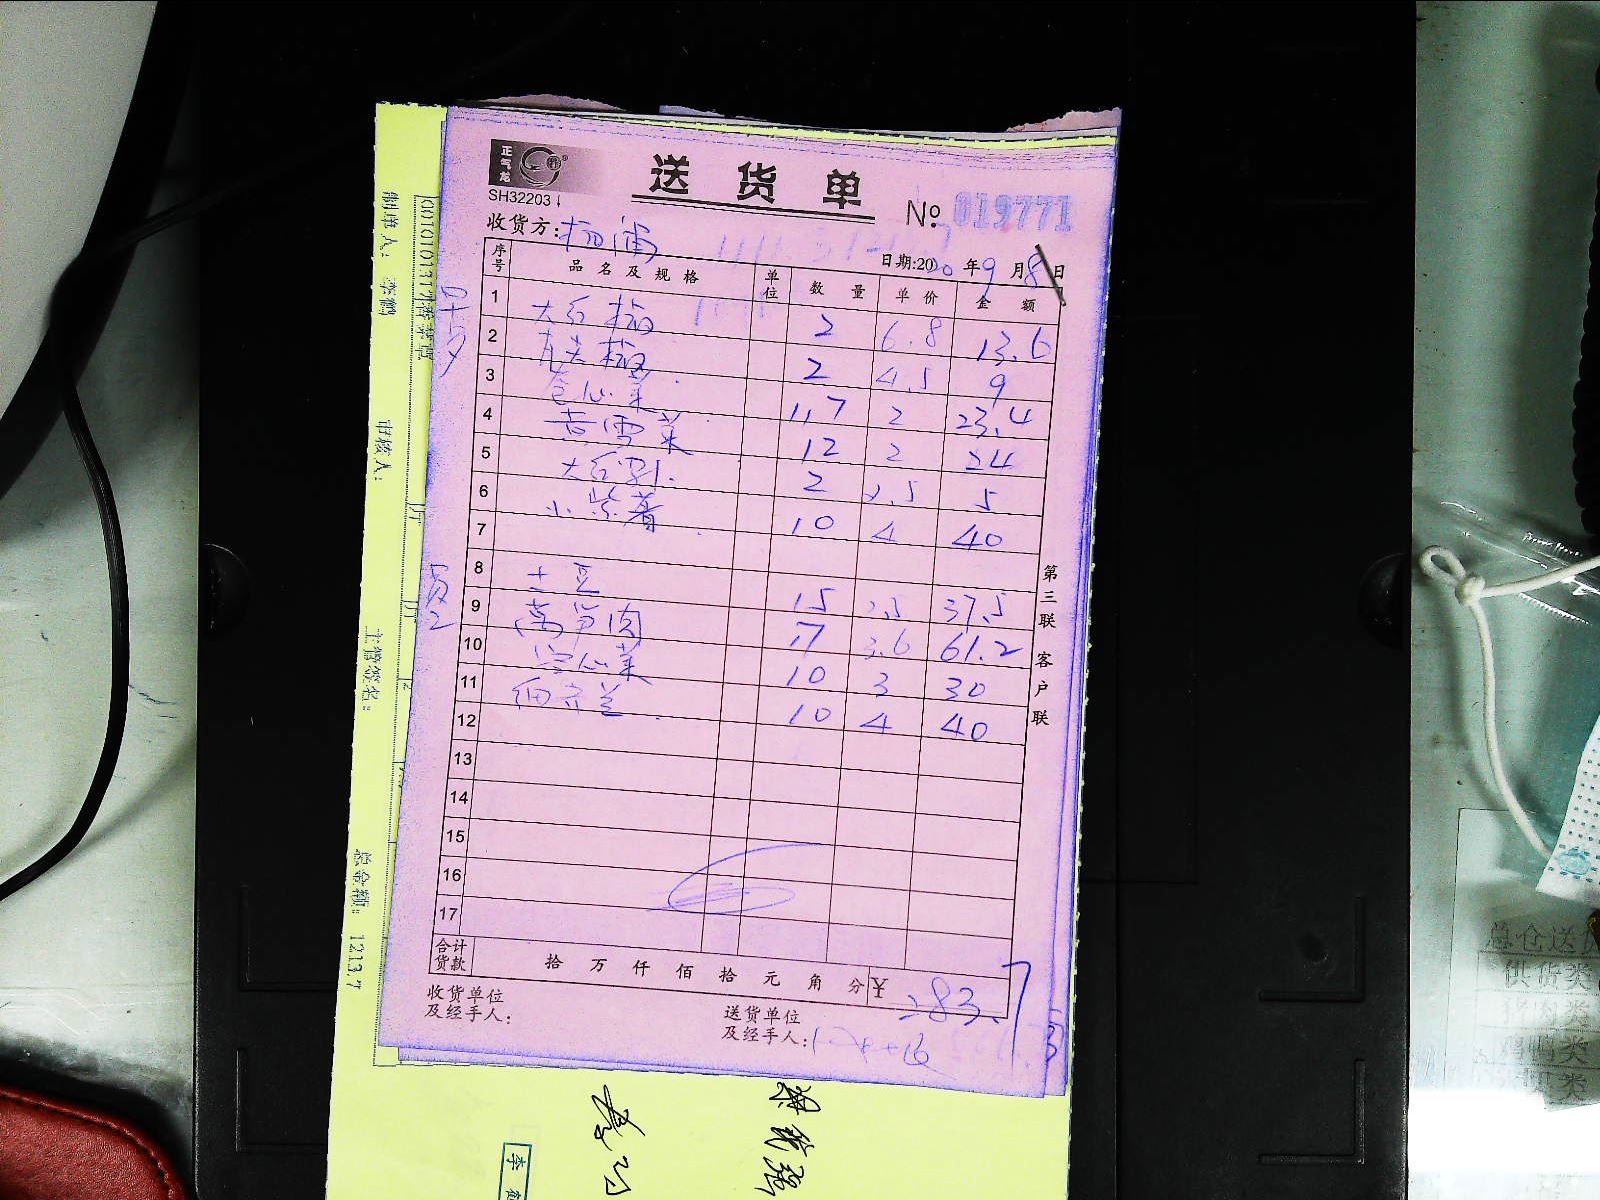 正气龙
SH32203
送货单
№ 019771
收货方: 杨浦
日期:2020年9月8日
序号 品名及规格 单位 数量 单价 金额
1 大红椒 2 6.8 13.6
2 青尖椒 2 4.5 9
3 包心菜 11.7 2 23.4
4 黄雪菜 12 2 24
5 大红 2 2.5 5
6 小紫薯 10 4 40
7
8 土豆 15 2.5 37.5
9 莴笋肉 17 3.6 61.2
10 空心菜 10 3 30
11 西兰 10 4 40
12
13
14
15
16
17
合计货款 拾万仟佰拾元角分 ¥ 283.7
收货单位及经手人:
送货单位及经手人:
第三联 客户联
制单人: 李鹤
审核人:
主管签名:
总金额: 1213.7
李
总仓送
供货类
猪肉类
鸡鸭类